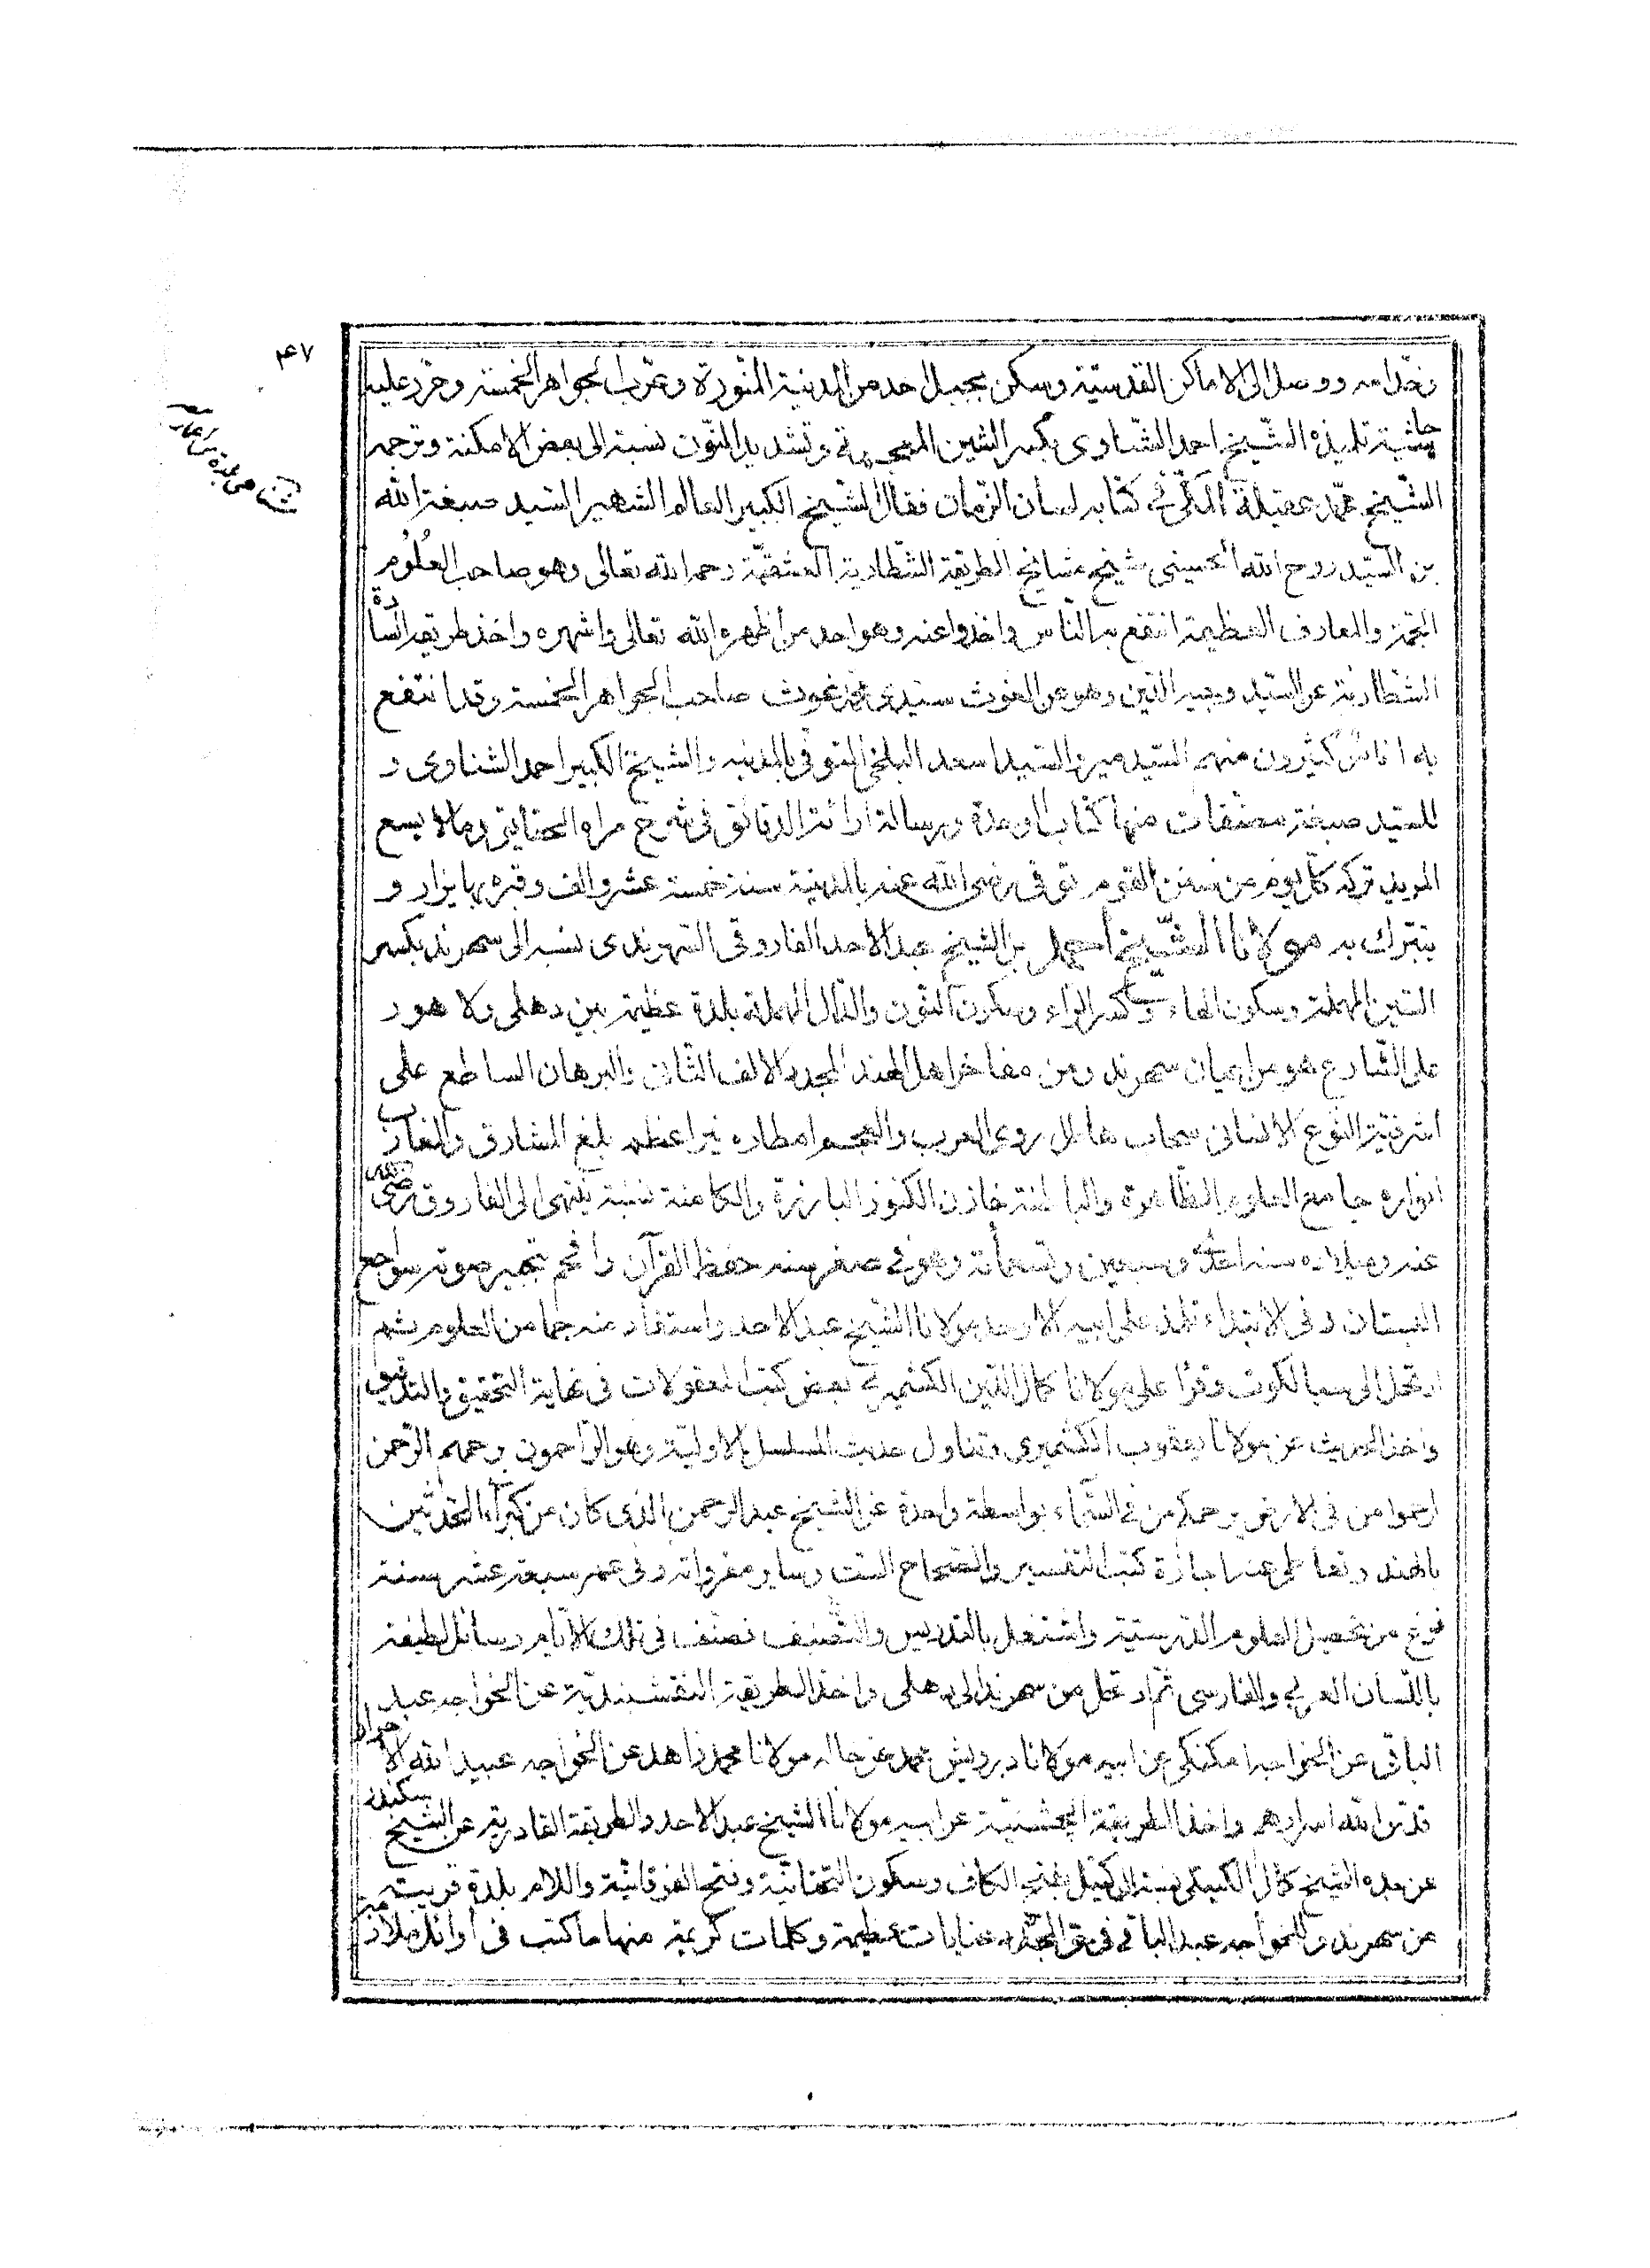 ۴۷
وخدامه ووصل الى الاماكن القدسيّة وسكن بجبل احد من المدينة المنورة وعرّب الجواهر الخمسة وحرّر عليه
حاشية تلميذه الشّيخ احمد الشنّاوى بكسر الشين المعجمة وتشديد النّون نسبة الى بعض الامكنة وترجمه
الشّيخ محمّد عقيلة المكّى فى كتابه لسان الزّمان فقال الشّيخ الكبير العالم الشهير السّيد صبغة الله
بن السّيد روح الله الحسينى شيخ مشايخ الطريقة الشّطارية العشقيّة رحمه الله تعالى وهو صاحب العُلُوم
الجمّة والمعارف العظيمة انتفع به الناس واخذوا عنه وهو احد من اظهره الله تعالى واشهره واخذ طريقه السادة
الشطارية عن السّيد وجيه الدّين وهو عن الغوث سيدى محمد غوث صاحب الجواهر الخمسة وقد انتفع
به اناسٌ كثيرون منهم السّيد مير والسّيد اسعد البلخى المتوفى بالمدينه والشيخ الكبير احمد الشناوى و
للسّيد صبغة مصنّفات منها كتاب الوحدة ورسالة ارائة الدقائق فى شرح مراة الحقايق وما لا يسع
المريد تركه كلّ يوم من سنن القوم توفى رضى الله عنه بالمدينة سنة خمسة عشر والف وقبره بها يزار و
يتبرّك به مولانا الشّيخ أحمد بن الشيخ عبد الاحد الفاروقى السّهرندى نسبه الى سهرند بكسر
السّين المهملة وسكون الهاء وكسر الرّاء وسكون النّون والدّال المهملة بلدة عظيمة بين دهلى ولاهور
على الشّارع هو من اعيان سهرند ومن مفاخر اهل الهند المجدد الالف الثّانى والبرهان الساطع على
اشرفية النّوع الانسانى سحاب هاطل روى العرب والعجم امطاره نير اعظم بلغ المشارق والمغارب
انواره جامع العلوم الظّاهرة والباطنة خازن الكنوز البارزة والكامنة نسبة ينتهى الى الفاروق رضى الله
عنه وميلاده سنه احدى وسبعين وتسعمائة وهو فى صغر سنه حفظ القرآن وافحم بتحبير صوته سواجع
البستان وفى الابتداء تلمذ على ابيه الاوحد مولانا الشّيخ عبد الاحد واستفاد منه جما من العلوم ثم
ارتحل الى سيالكوت وقرأ على مولانا كمال الدّين الكشميرى بعض كتب المعقولات فى نهاية التحقيق والتدقيق
واخذ الحديث عن مولانا يعقوب الكشميرى وتناول حديث المسلسل بالاوليّة وهو الرّاحمون يرحمهم الرّحمن
ارحموا من فى الارض يرحمكم من فى السّماء بواسطة واحدة عن الشيخ عبد الرحمن الذى كان من كبراء المحدّثين
بالهند وتعاطى عنه اجازة كتب التفسير والصّحاح الست وساير مقرواته وفى عمر سبعة عشر سنة
فرغ من تحصيل العلوم الدّرسيّة واشتغل بالتدريس والتّصنيف فصنّف فى تلك الايّام رسائل لطيفة
باللّسان العربى والفارسى ثمّ ارتحل من سهرند الى دهلى واخذ الطريقة النقشبنديّة عن الخواجه عبد
الباقى عن الخواجه امكنكى عن ابيه مولانا درويش محمد عن خاله مولانا محمد زاهد عن الخواجه عبيد الله الاحرار
قدّس الله اسرارهم واخذ الطريقة الچشتيّة عن ابيه مولانا الشيخ عبد الاحد والطريقة القادريّة عن الشيخ سكندر
عن جده الشيخ كمال الكيتلى نسبة الى كيتل بفتح الكاف وسكون التحتانيّة وفتح الفوقانيّة واللام بلدة قريبة
من سهرند والخواجه عبد الباقى فى حق المجدّد عنايات عظيمة وكلمات كريمة منها ما كتب فى اوائل ملازمته